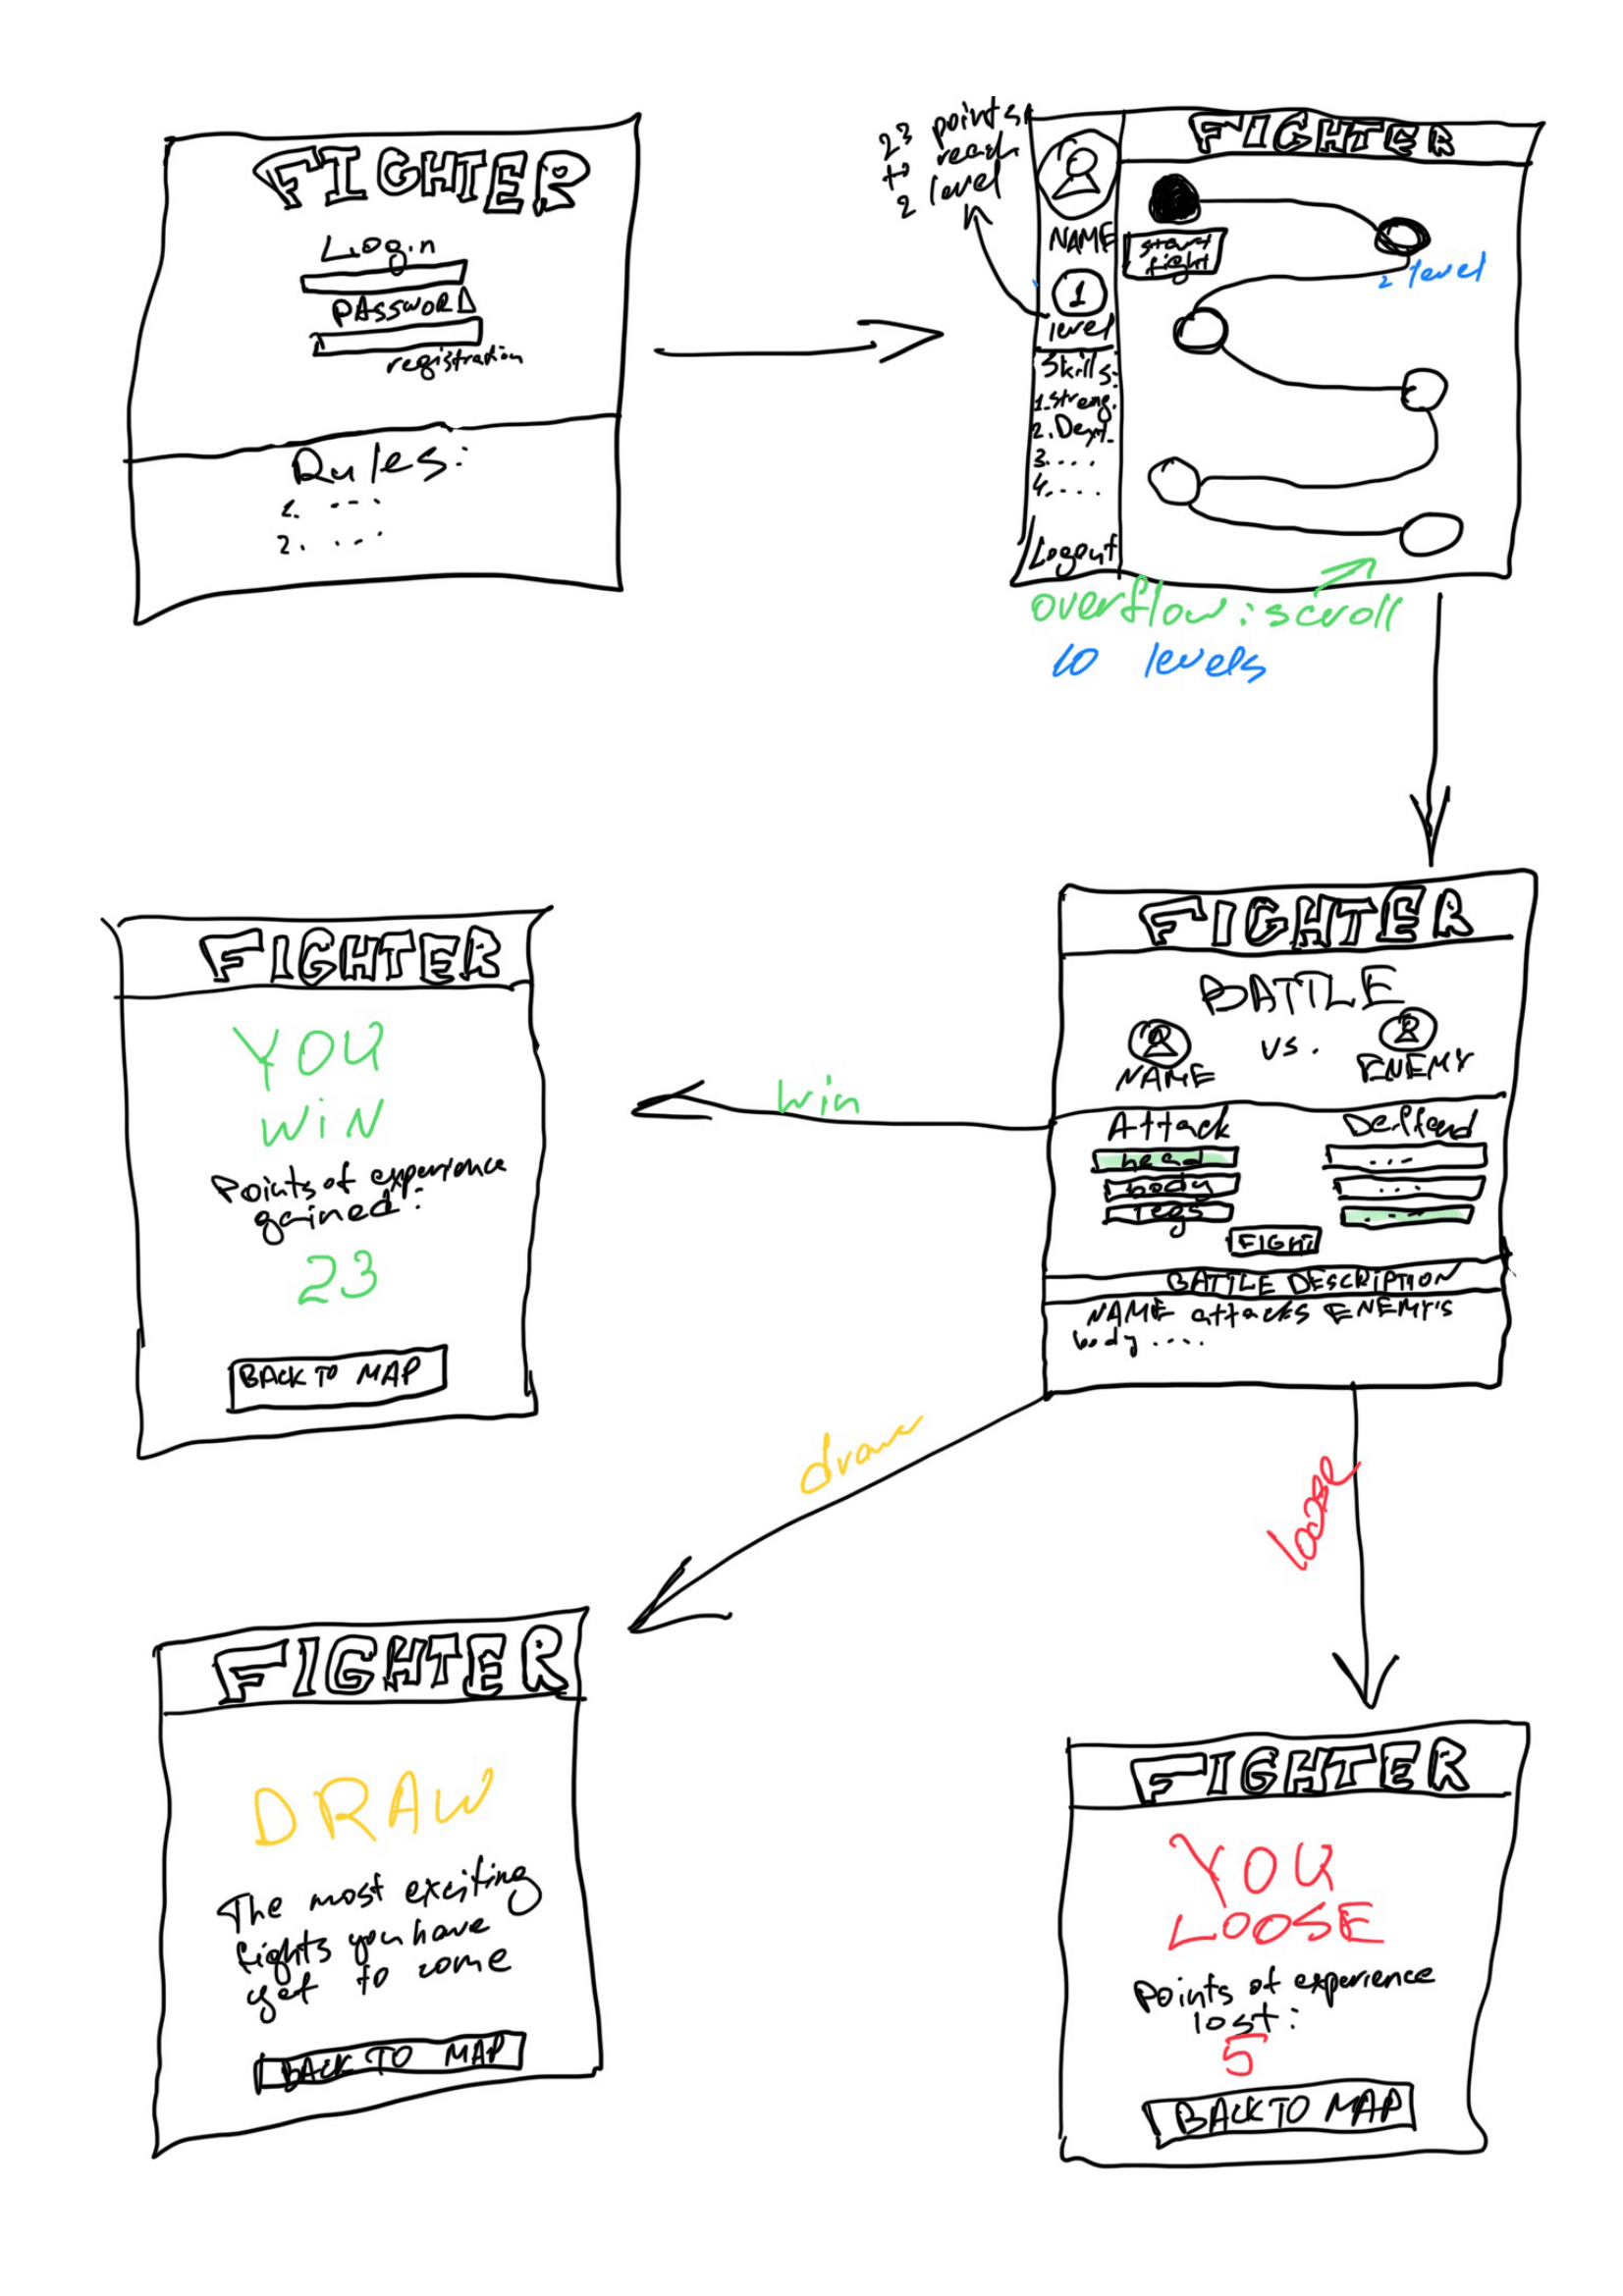 FIGHTER
Login
PASSWORD
registration
Rules:
1. ....
2. ....
23 points
to reach
2 level
FIGHTER
NAME
1
level
Skills:
1. streng.
2. Dext.
3. ....
4. ....
Logout
start
fight
2 level
overflow: scroll
10 levels
FIGHTER
BATTLE
NAME
vs.
ENEMY
Attack
head
body
legs
Deffend
...
...
...
FIGHT
BATTLE DESCRIPTION
NAME attacks ENEMY's
body ....
win
FIGHTER
YOU
WiN
Points of experience
gained:
23
BACK TO MAP
draw
FIGHTER
DRAW
The most exciting
fights you have
yet to come
BACK TO MAP
loose
FIGHTER
YOU
LOOSE
Points of experience
lost:
5
BACK TO MAP